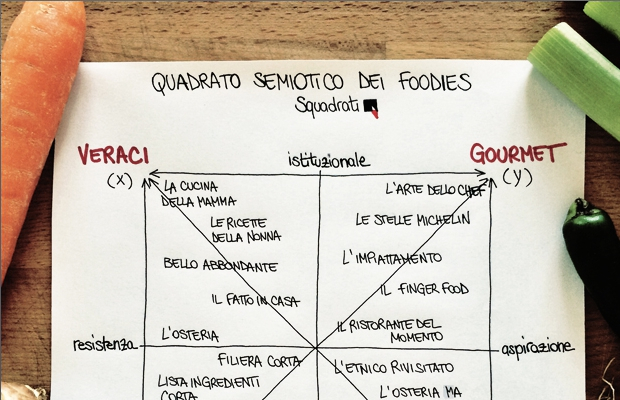 QUADRATO SEMIOTICO DEI FOODIES
Squadrati
VERACI
istituzionale
GOURMET
(x)
(y)
LA CUCINA
DELLA MAMMA
L'ARTE DELLO CHEF
LE RICETTE
DELLA NONNA
LE STELLE MICHELIN
BELLO ABBONDANTE
L'IMPIATTAMENTO
IL FATTO IN CASA
IL FINGER FOOD
L'OSTERIA
IL RISTORANTE DEL
MOMENTO
resistenza
aspirazione
FILIERA CORTA
L'ETNICO RIVISITATO
LISTA INGREDIENTI
CORTA
L'OSTERIA MA